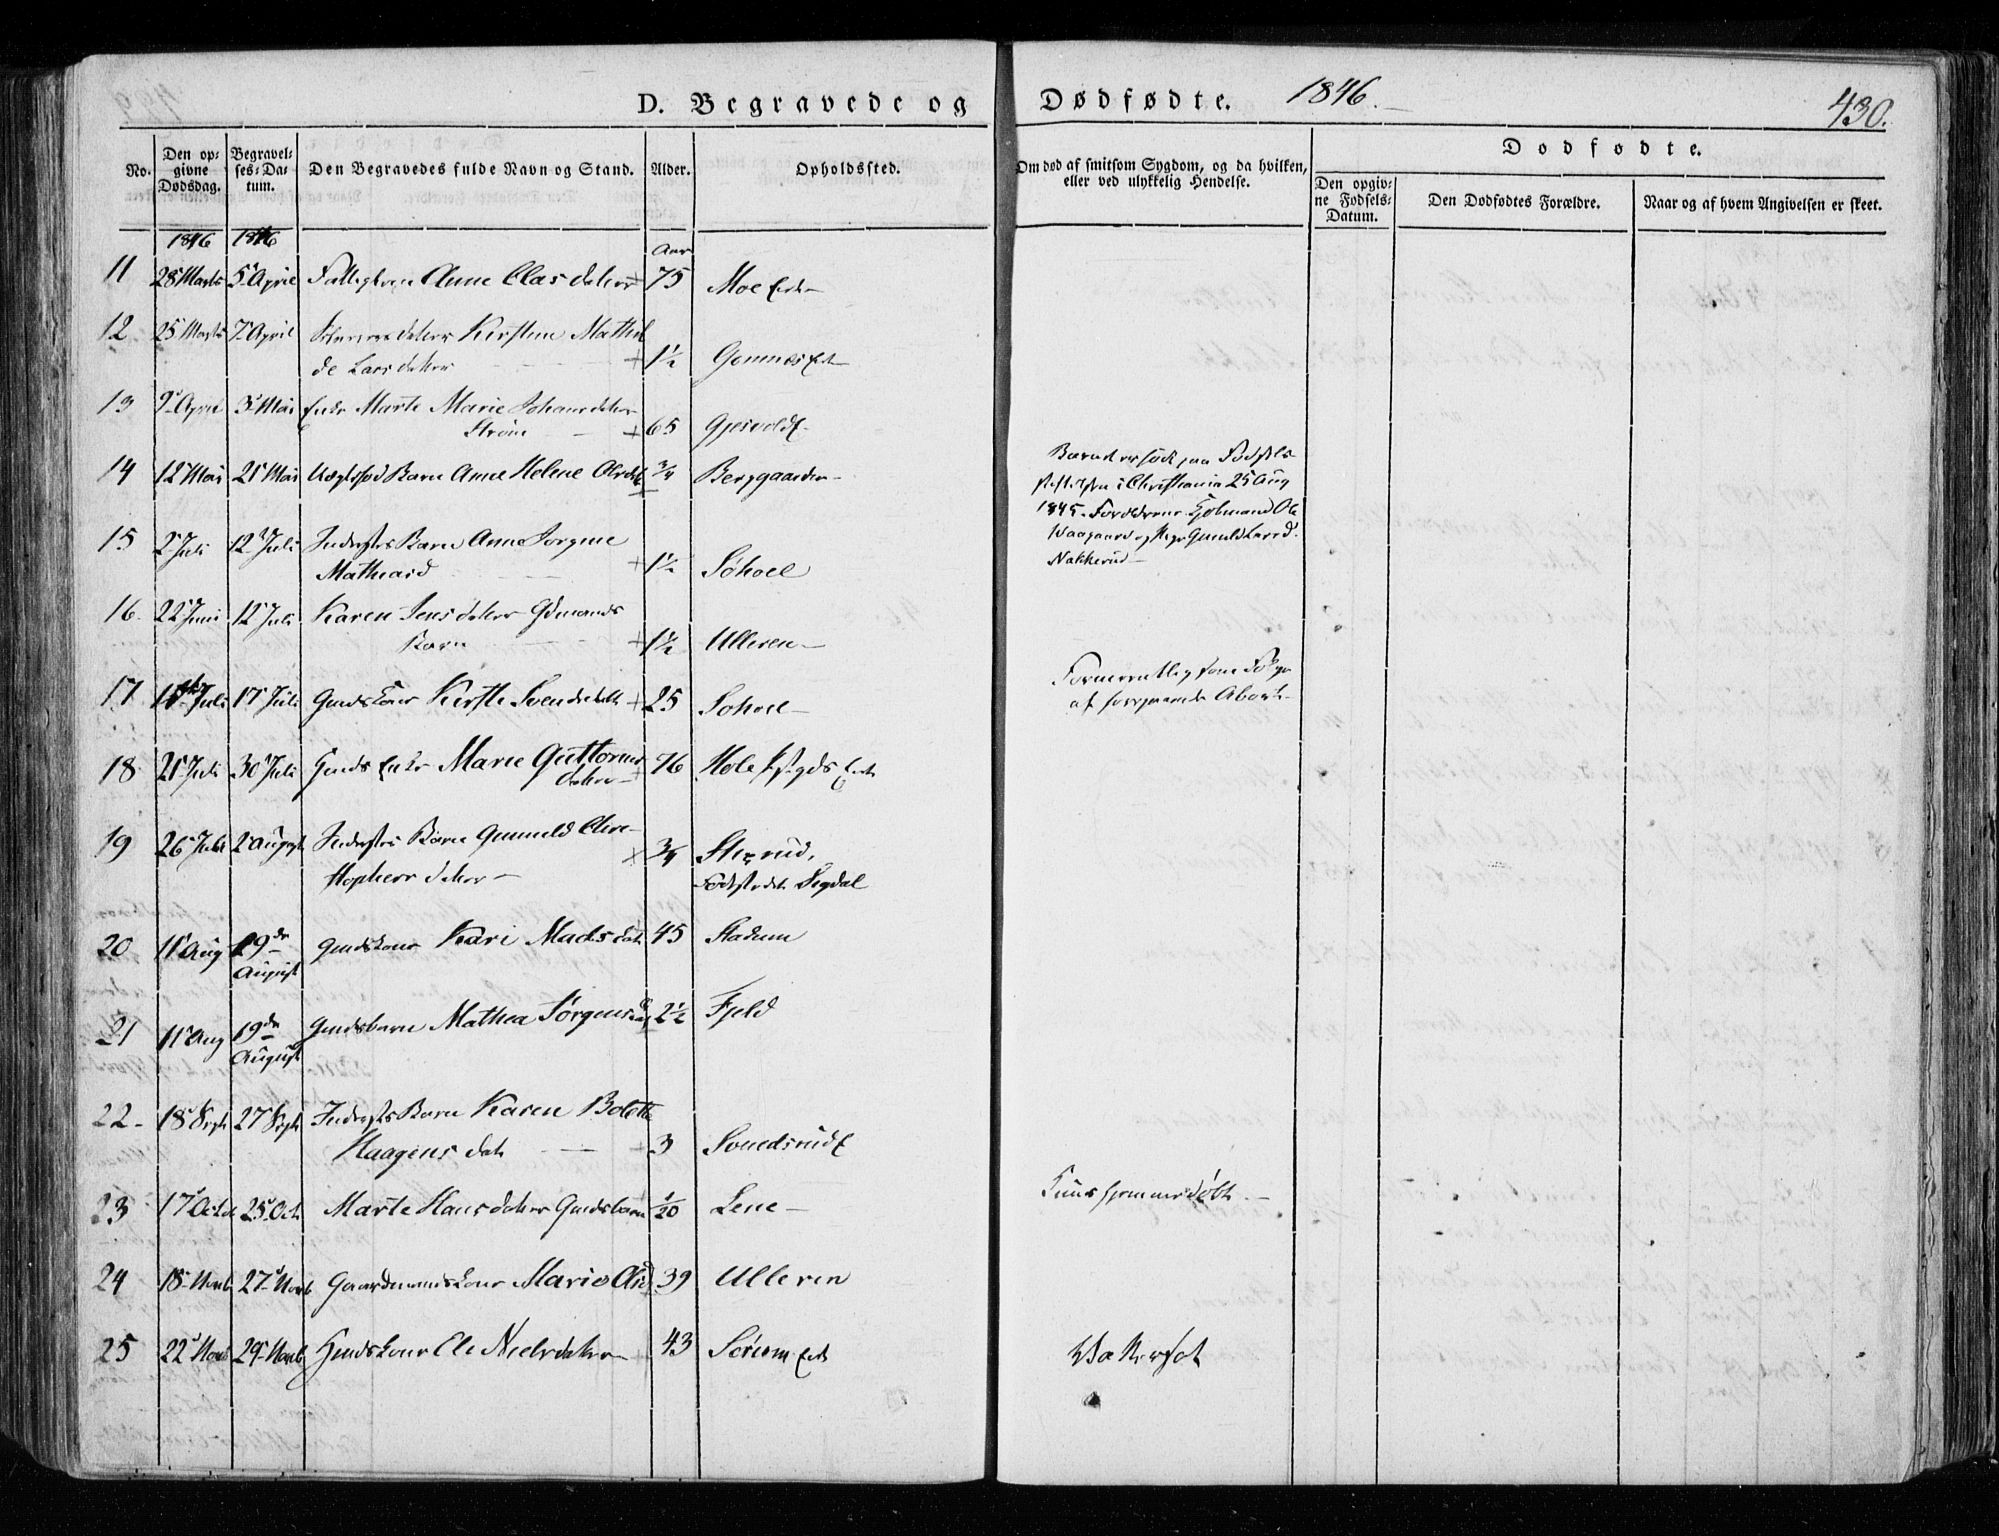 D. Begravede og Dødfødte. 1846. 430.
No. Den opgivne Dødsdag. Begravelses-Datum. Den Begravedes fulde Navn og Stand. Alder. Opholdssted. Om død af smitsom Sygdom, og da hvilken, eller ved ulykkelig Hendelse.
Dødfødte.
Den opgivne Fødsels-Datum. Den Dødfødtes Forældre. Naar og af hvem Angivelsen er skeet.
1846 1846 Aar
11 28 Marts 5 April Anne Clas datter 75 Moe
12 25 Marts 7 April Kirstine Mathil
de Larsdatter 1½ Gomnes
13 9 April 3 Mai Enke Marte Marie Johansdatter
Strøm 65 Gjesvold
14 12 Mai 21 Mai Uægtefød Barn Anne Helene Olsdt 3/4 Berggaarden
Barnet er født paa Fødsels
stiftelsen i Christiania 25 Aug
1845. Forældrene Ole
Waagaard og Pige Gunild Larsd.
Nakkerud
15 2 Juli 12 Juli Inderstes Barn Anne Jorgine
Matheasd 1½ Søhoel
16 22 Juni 12 Juli Karen Jensdatter Gdmands
Barn 1½ Ulleren
17 11 Juli 17 Juli Gmds Kone Kirsti Svendsdatt 25 Sohoel
Formeentlig som Følge
af foregaaende Abort
18 21 Juli 30 Juli Gmds Enke Marie Guttorms
datter 76 Hole
19 26 Juli 2 August Inderstes Barn Gunnild Chri-
stophersdatter 3/4
Fødestedet Sigdal
20 11 Aug 19de
August Gmds kone Kari Madsdat 45 Stadum
21 11 Aug 19de
August Gmdsbarn Mathea Jørgensd 2½ Fjeld
22 18 Sept 27 Sept Inderstes Barn Karen Bolette
Haagens dat 3 Svendsrud
23 17 Octob 25 Oct Marte Hansdatter Gmdsbarn 1/20 Lene
hjemmedøbt
24 18 Novb 27 Novb Gaardmandskone Marie Olsd 39 Ulleren
25 22 Novb 29 Novb Kone Eli Nielsdatter 43 Sørum
Vattersot